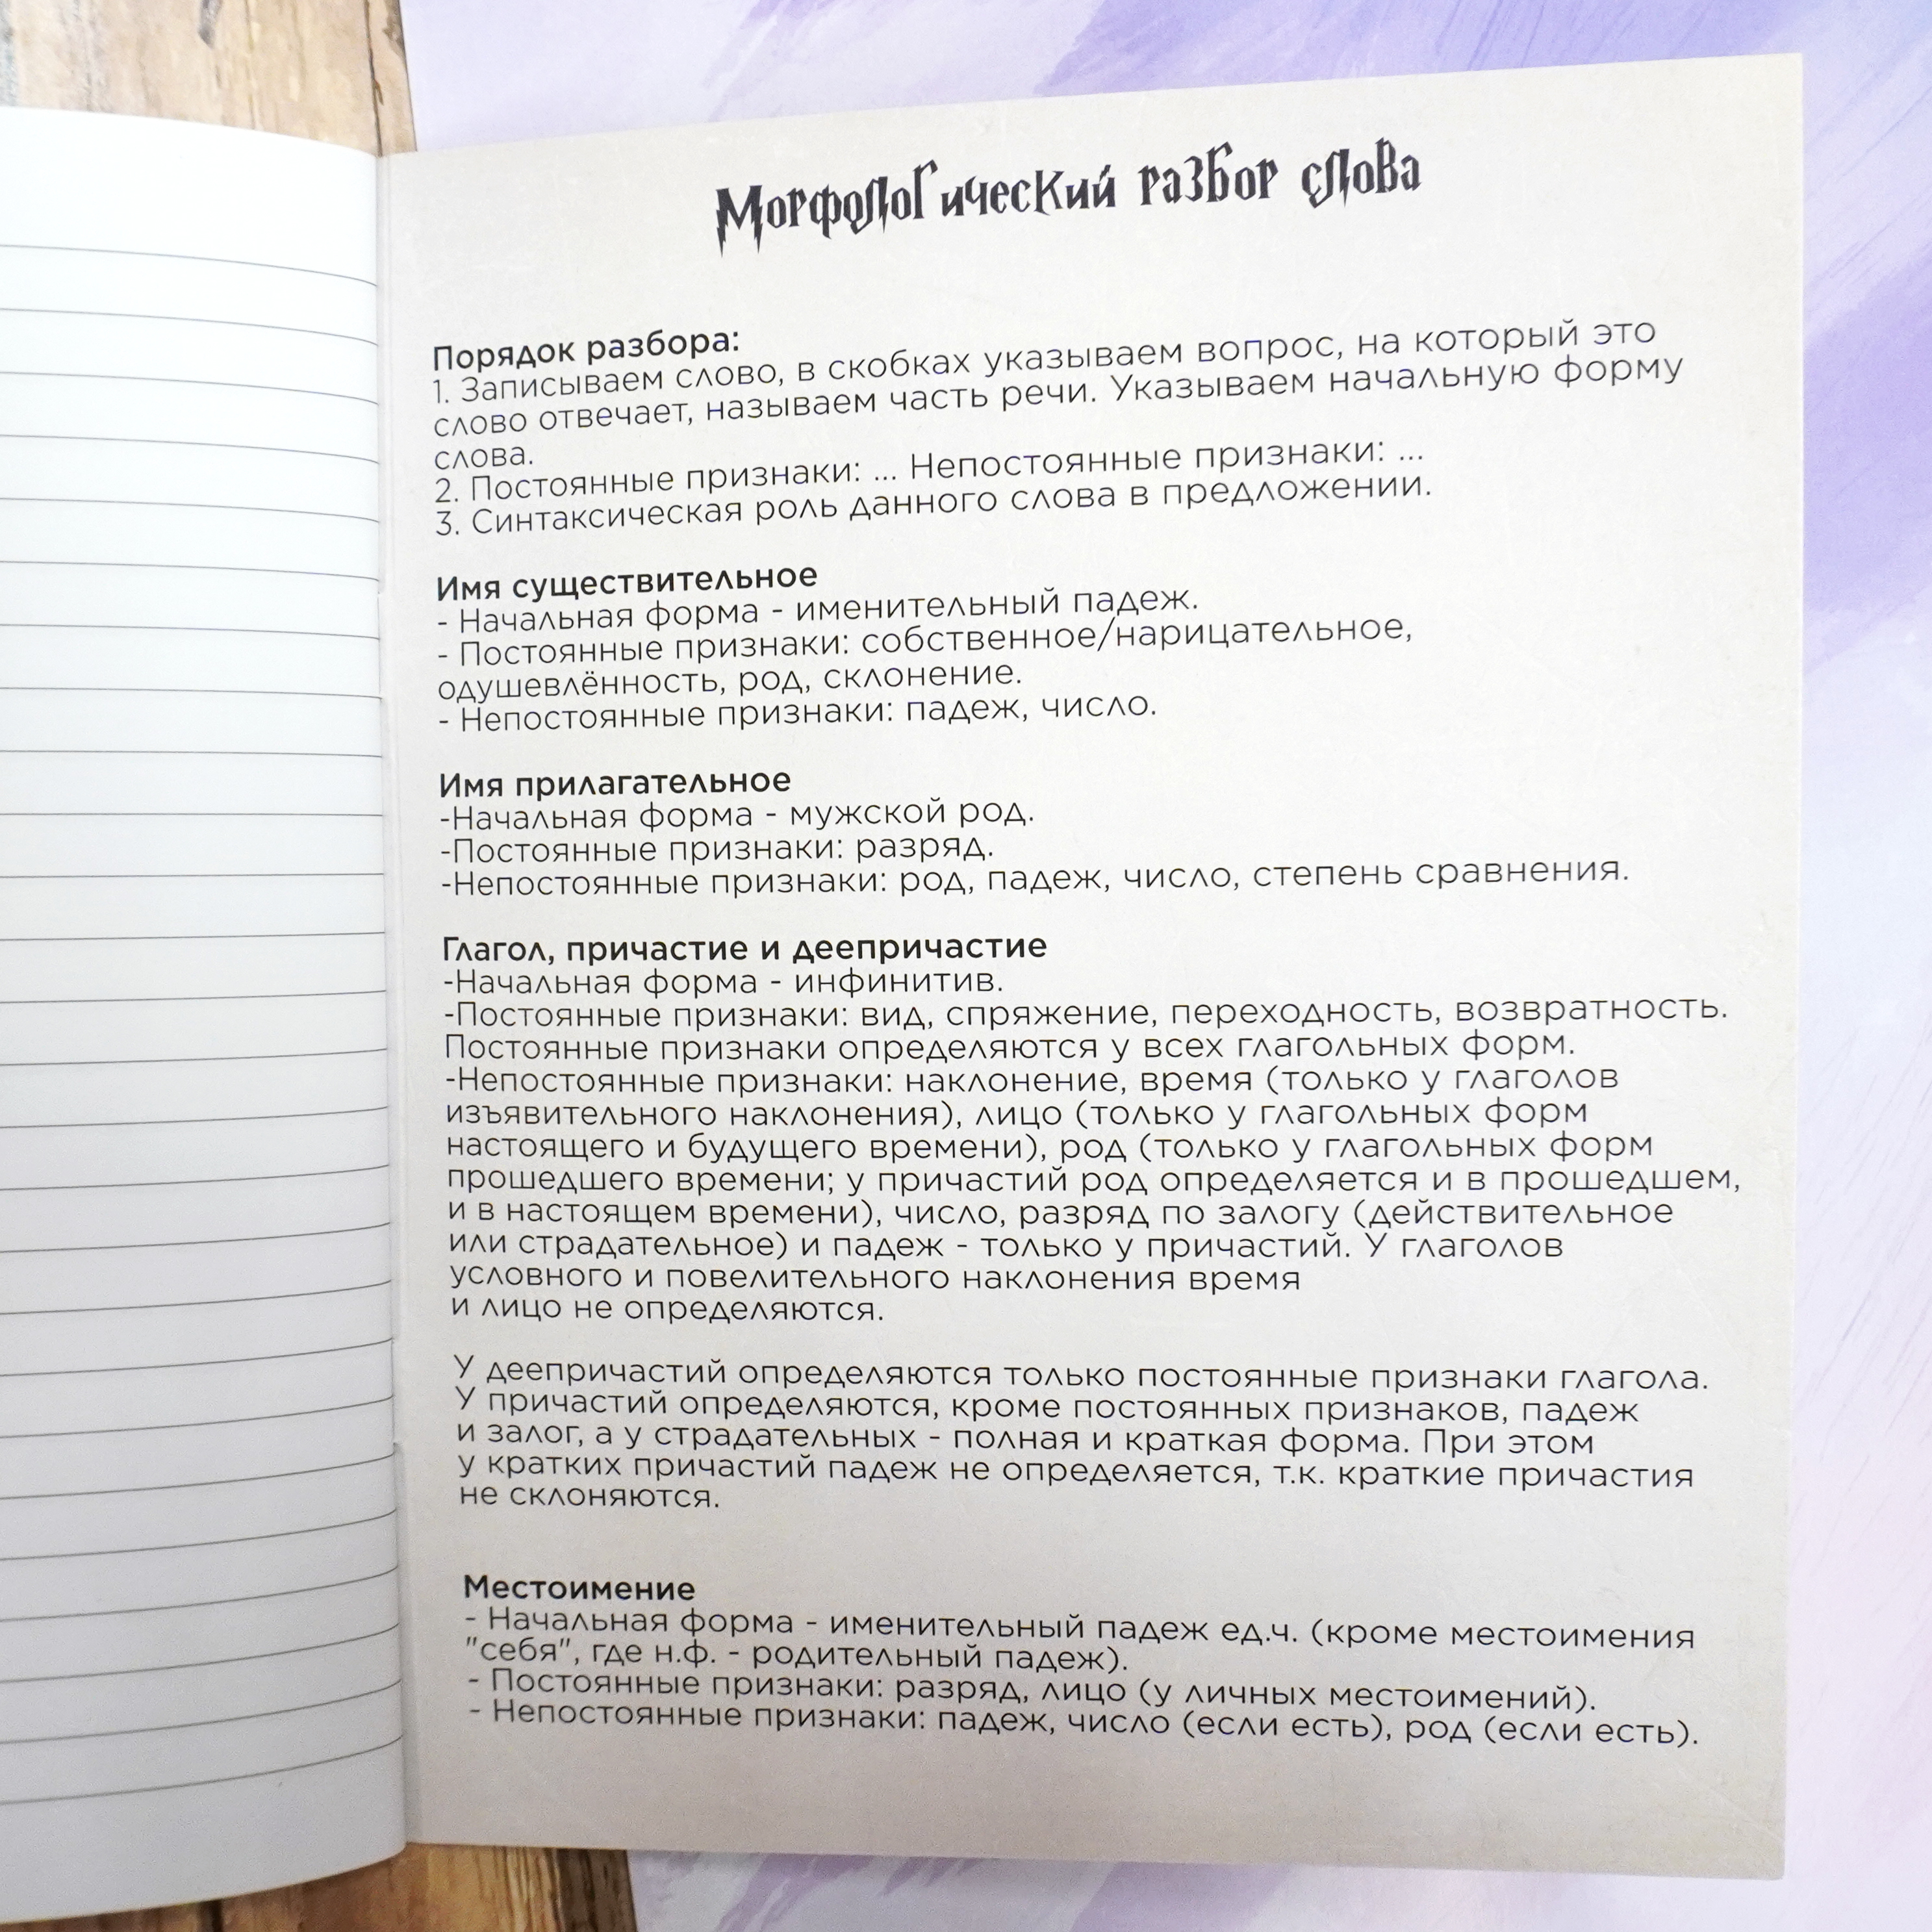 Морфологический разбор слова
Порядок разбора:
1. Записываем слово, в скобках указываем вопрос, на который это
слово отвечает, называем часть речи. Указываем начальную форму
слова.
2. Постоянные признаки: ... Непостоянные признаки: ...
3. Синтаксическая роль данного слова в предложении.
Имя существительное
- Начальная форма - именительный падеж.
- Постоянные признаки: собственное/нарицательное,
одушевлённость, род, склонение.
- Непостоянные признаки: падеж, число.
Имя прилагательное
-Начальная форма - мужской род.
-Постоянные признаки: разряд.
-Непостоянные признаки: род, падеж, число, степень сравнения.
Глагол, причастие и деепричастие
-Начальная форма - инфинитив.
-Постоянные признаки: вид, спряжение, переходность, возвратность.
Постоянные признаки определяются у всех глагольных форм.
-Непостоянные признаки: наклонение, время (только у глаголов
изъявительного наклонения), лицо (только у глагольных форм
настоящего и будущего времени), род (только у глагольных форм
прошедшего времени; у причастий род определяется и в прошедшем,
и в настоящем времени), число, разряд по залогу (действительное
или страдательное) и падеж - только у причастий. У глаголов
условного и повелительного наклонения время
и лицо не определяются.
У деепричастий определяются только постоянные признаки глагола.
У причастий определяются, кроме постоянных признаков, падеж
и залог, а у страдательных - полная и краткая форма. При этом
у кратких причастий падеж не определяется, т.к. краткие причастия
не склоняются.
Местоимение
- Начальная форма - именительный падеж ед.ч. (кроме местоимения
"себя", где н.ф. - родительный падеж).
- Постоянные признаки: разряд, лицо (у личных местоимений).
- Непостоянные признаки: падеж, число (если есть), род (если есть).